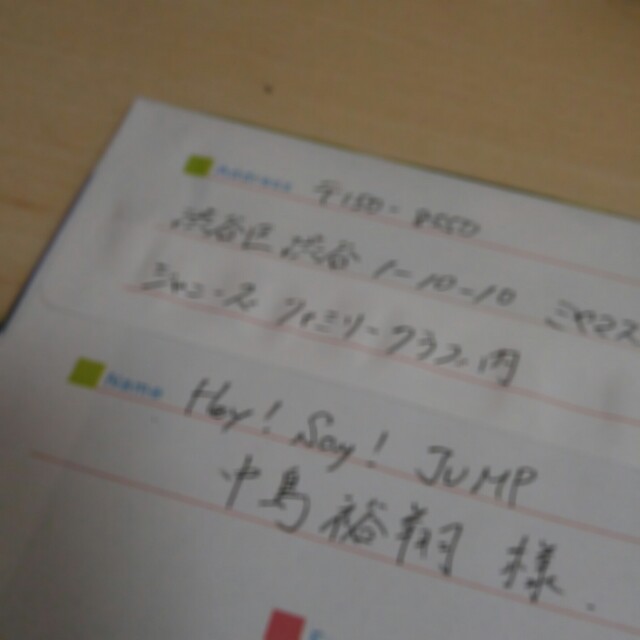 Address 〒150-8550
渋谷区渋谷 1-10-10 ミヤマス
ジャニーズ ファミリークラブ内
Name Hey! Say! JUMP
中島裕翔 様.